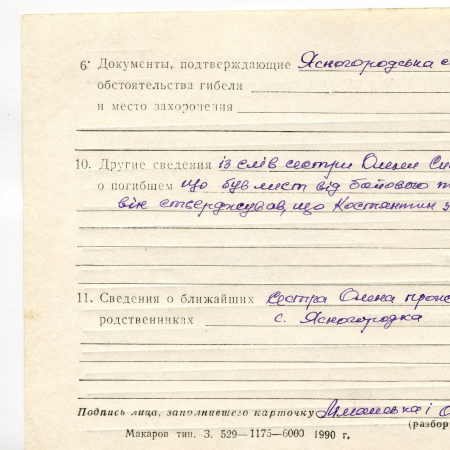 6· Документы, подтверждающие Ясногородська с
обстоятельства гибели
и место захоронения
10. Другие сведения із слів сестри Олени Си
о погибшем що був лист від бойового т
він стверджував, що Костянтин з
11. Сведения о ближайших сестра Олена прож
родственниках с. Ясногородка
Подпись лица, заполнившего карточку
(разбор
Макаров тип. З. 529—1175—6000 1990 г.